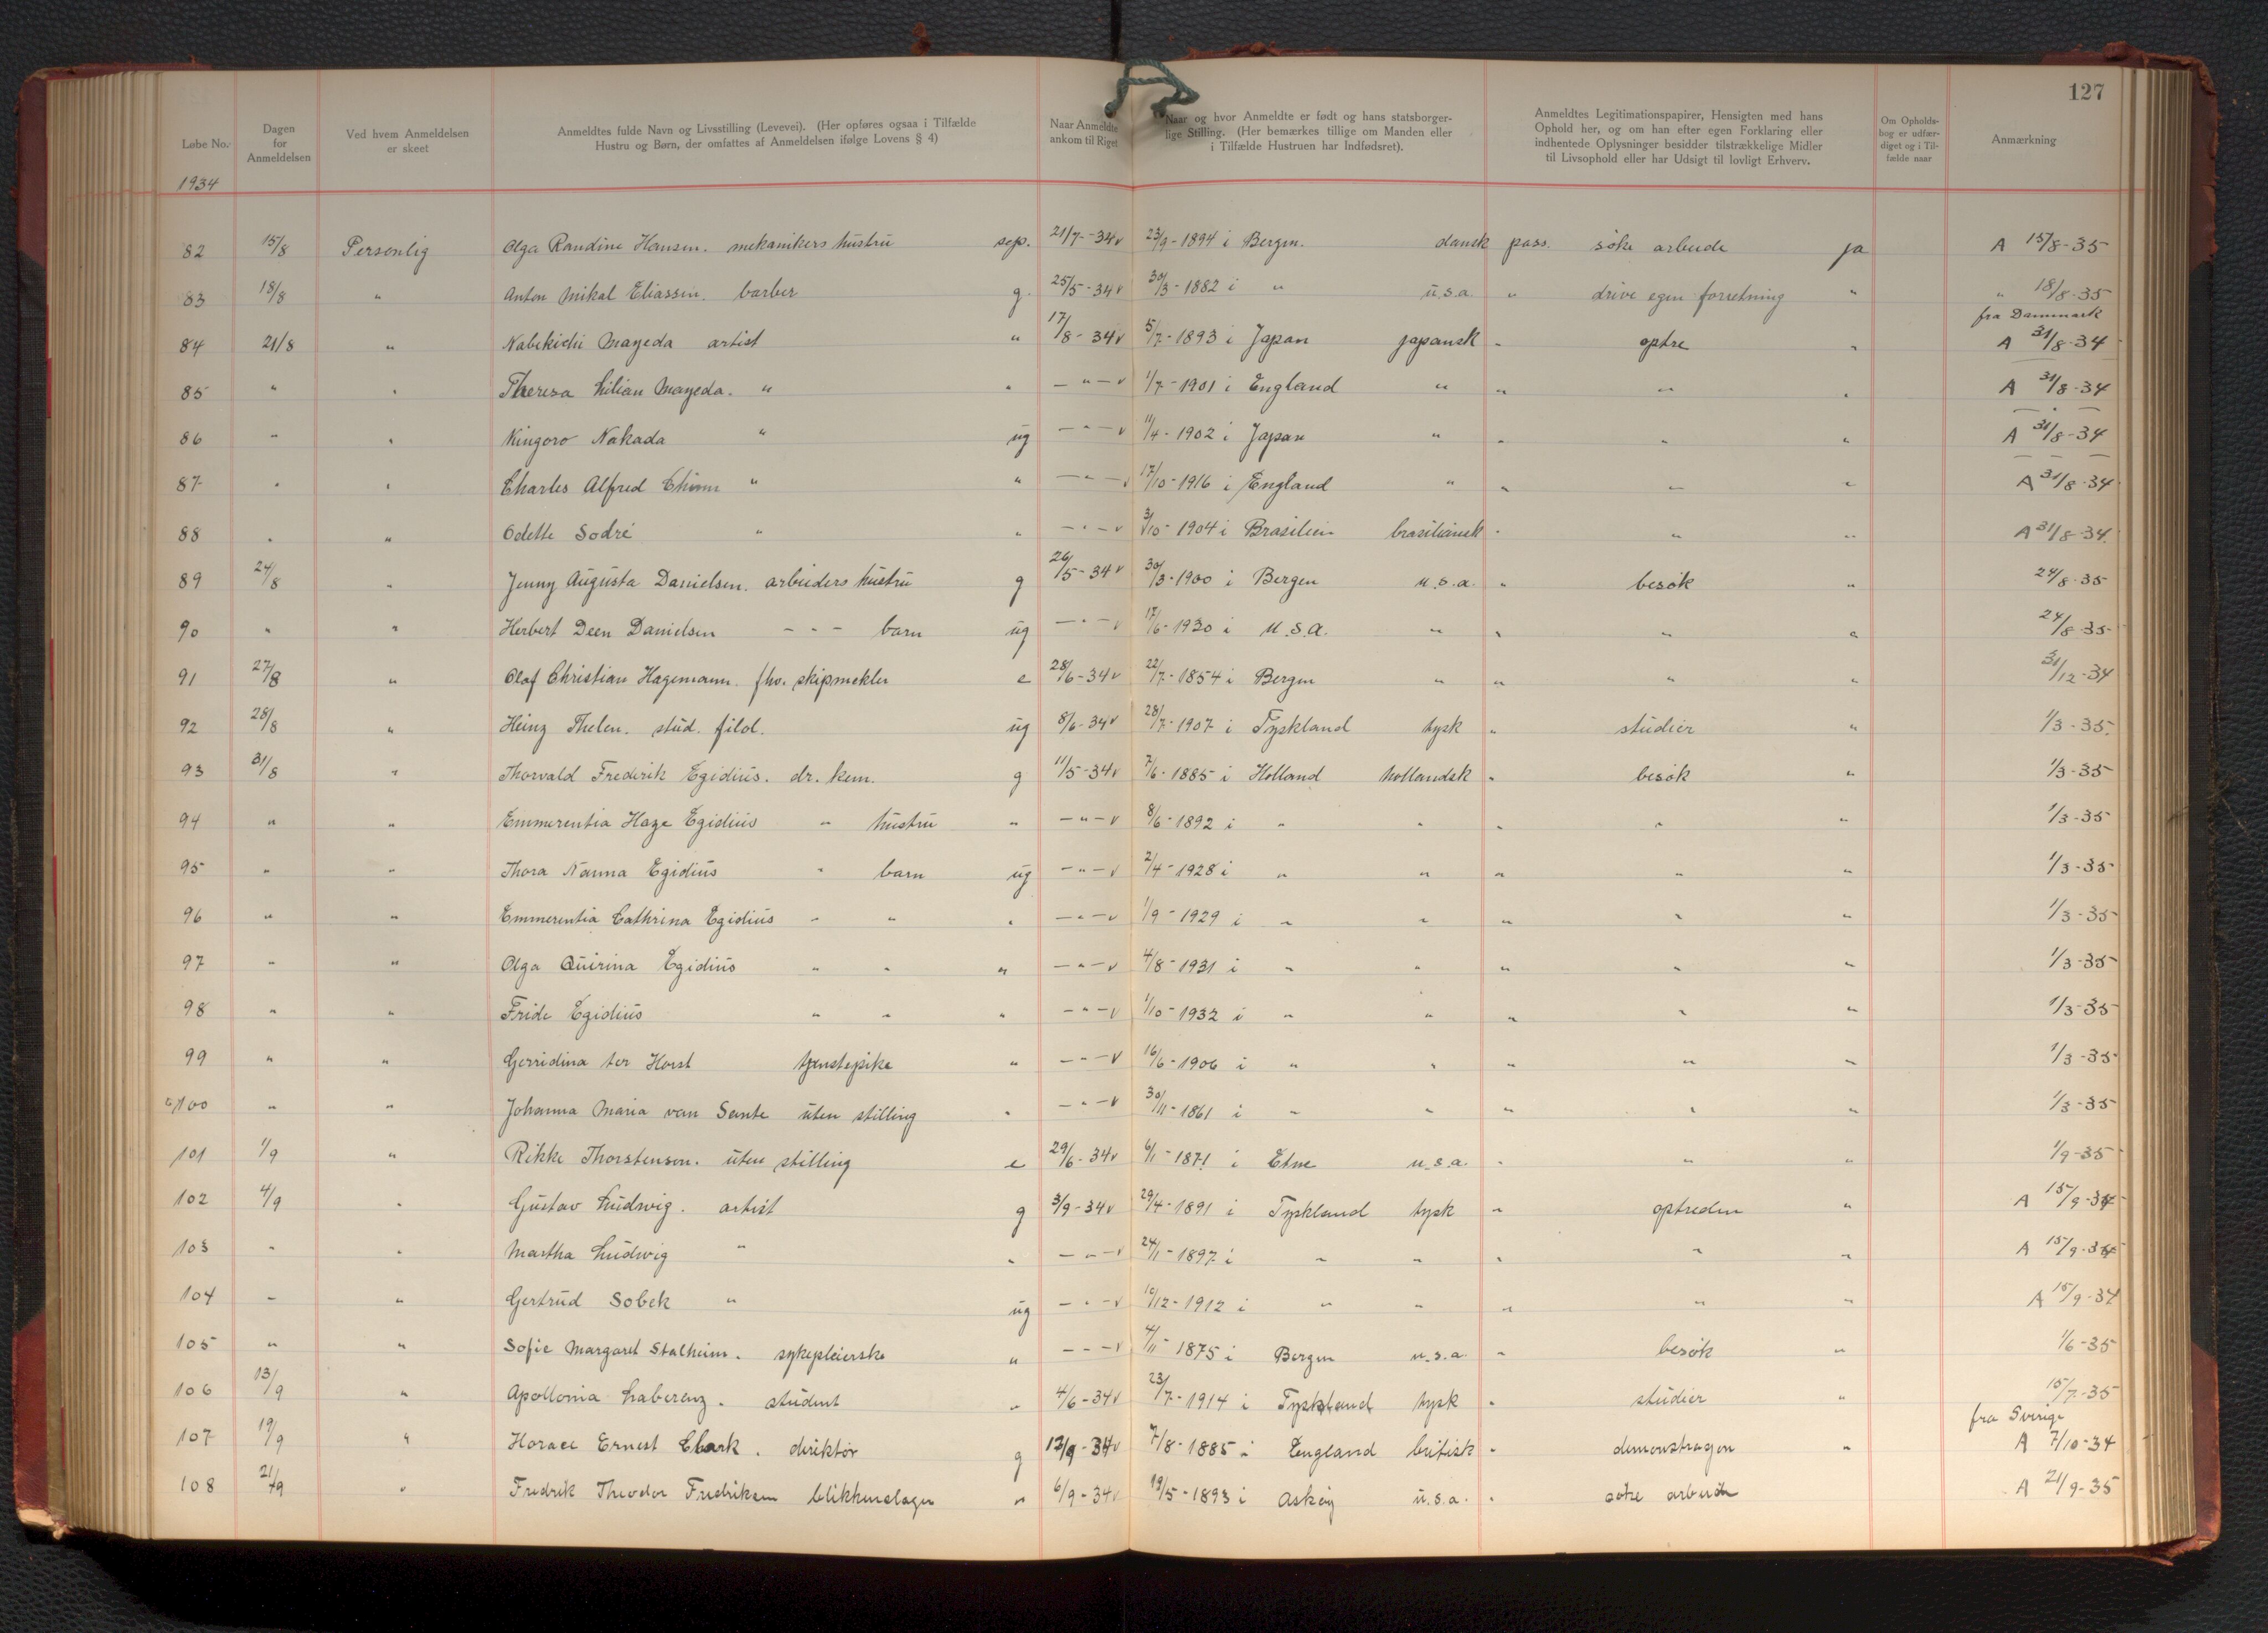 127
Løbe No.
Dagen for Anmeldelsen
Ved hvem Anmeldelsen er skeet
Anmeldtes fulde Navn og Livsstilling (Levevei). (Her opføres ogsaa i Tilfælde Hustru og Børn, der omfattes af Anmeldelsen ifølge Lovens § 4)
Naar Anmeldte ankom til Riget
Naar og hvor Anmeldte er født og hans statsborgerlige Stilling. (Her bemærkes tillige om Manden eller i Tilfælde Hustruen har Indfødsret).
Anmeldtes Legitimationspapirer, Hensigten med hans Ophold her, og om han efter egen Forklaring eller indhentede Oplysninger besidder tilstrækkelige Midler til Livsophold eller har Udsigt til lovligt Erhverv.
Om Opholdsbog er udfærdiget og i Tilfælde naar
Anmærkning
1934
82 15/8 Personlig Olga Randine Hansen. mekanikers hustru sep. 21/7-34 v 23/9-1894 i Bergen. dansk pass. söke arbeide ja A 15/8-35
83 18/8 " Anton Mikal Eliassen. barber g. 25/5-34 v 30/3-1882 i " u.s.a. " drive egen forretning " " 18/8-35
fra Danmark
84 21/8 " Nabekichi Mayeda artist " 17/8-34 v 5/7-1893 i Japan japansk " optre " A 31/8-34
85 " " Theresa Lilian Mayeda. " " - " - v 1/7-1901 i England " " " " A 31/8-34
86 " " Kingoro Nakada " ug - " - v 11/4-1902 i Japan " " " " A 31/8-34
87 " " Charles Alfred " " - " - v 17/10-1916 i England " " " " A 31/8-34
88 " " Odette Sodré " " - " - v 3/10-1904 i Brasilien brasiliansk " " " A 31/8-34.
89 24/8 " Jenny Augusta Danielsen. arbeiders hustru g 26/5-34 v 30/3-1900 i Bergen u.s.a. " besök " 24/8-35
90 " " Herbert Deen Danielsen - " - barn ug - " - v 17/6-1930 i U.S.A. " " " " 24/8-35
91 27/8 " Olaf Christian Hagemann. fhv. skipmekler e 28/6-34 v 22/7-1854 i Bergen " " " " 31/12-34
92 28/8 " Heinz Thelen. stud. filol. ug 8/6-34 v 28/7-1907 i Tyskland tysk " studier " 1/3-35.
93 31/8 " Thorvald Frederik Egidius. dr. kem. g 11/5-34 v 7/6-1885 i Holland hollandsk " besök " 1/3-35
94 " " Emmerentia Haze Egidius " hustru " - " - v 8/6-1892 i " " " " " 1/3-35
95 " " Thora Nanna Egidius " barn ug - " - v 2/4-1928 i " " " " " 1/3-35
96 " " Emmerentia Cathrina Egidius " " " - " - v 1/9-1929 i " " " " " 1/3-35
97 " " Olga Quirina Egidius " " " - " - v 4/8-1931 i " " " " " 1/3-35
98 " " Fride Egidius " " " - " - v 1/10-1932 i " " " " " 1/3-35
99 " " Gerridina ter Horst tjenstepike " - " - v 16/6-1906 i " " " " " 1/3-35
100 " " Johanna Maria van Sante uten stilling " - " - v 30/11-1861 i " " " " " 1/3-35
101 1/9 " Rikke Thorstenson. uten stilling e 29/6-34 v 6/1-1871 i Etne u.s.a. " " " 1/9-35
102 4/9 " Gustav Ludwig. artist g 3/9-34 v 29/4-1891 i Tyskland tysk " optreden " A 15/9-34
103 " " Martha Ludwig " " - " - v 24/1-1897 i " " " " " A 15/9-34
104 " " Gertrud Sobek " ug - " - v 10/12-1912 i " " " " " A 15/9-34
105 " " Sofie Margaret Stalheim. sykepleierske " - " - v 4/11-1875 i Bergen u.s.a. " besök " 1/6-35
106 13/9 " Apollonia Laberenz. student " 4/6-34 v 23/7-1914 i Tyskland tysk " studier " 15/7-35
fra Sverige
107 19/9 " Horace Ernest Clark. direktör g 12/9-34 v 7/8-1885 i England britisk " demonstragon " A 7/10-34
108 21/9 " Fredrik Theodor Fredriksen blikkenslager " 6/9-34 v 19/5-1893 i Asköy u.s.a. " söke arbeide A 21/9-35